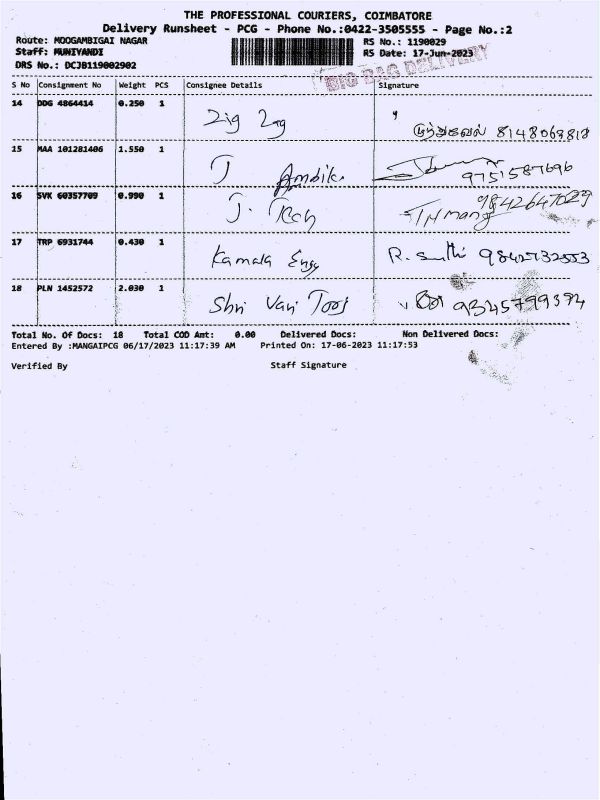 THE PROFESSIONAL COURIERS, COIMBATORE
Delivery Runsheet - PCG - Phone No.:0422-3505555 - Page No.:2
Route: MOOGAMBIGAI NAGAR RS No.: 1190029
Staff: MUNIYANDI RS Date: 17-Jun-2023
DRS No.: DCJB119002902
BIG BAG DELIVERY
S No Consignment No Weight PCS Consignee Details Signature
14 DDG 4864414 0.250 1 Zig Zag 8148069818
15 MAA 101281406 1.550 1 J Ambik. 9751587696
16 SVK 60357709 0.990 1 J. Tech 9842647029
17 TRP 6931744 0.430 1 Kamala Engg R. 9842732553
18 PLN 1452572 2.030 1 Shri Vari Tools 9345799394
Total No. Of Docs: 18 Total COD Amt: 0.00 Delivered Docs: Non Delivered Docs:
Entered By :MANGAIPCG 06/17/2023 11:17:39 AM Printed On: 17-06-2023 11:17:53
Verified By Staff Signature